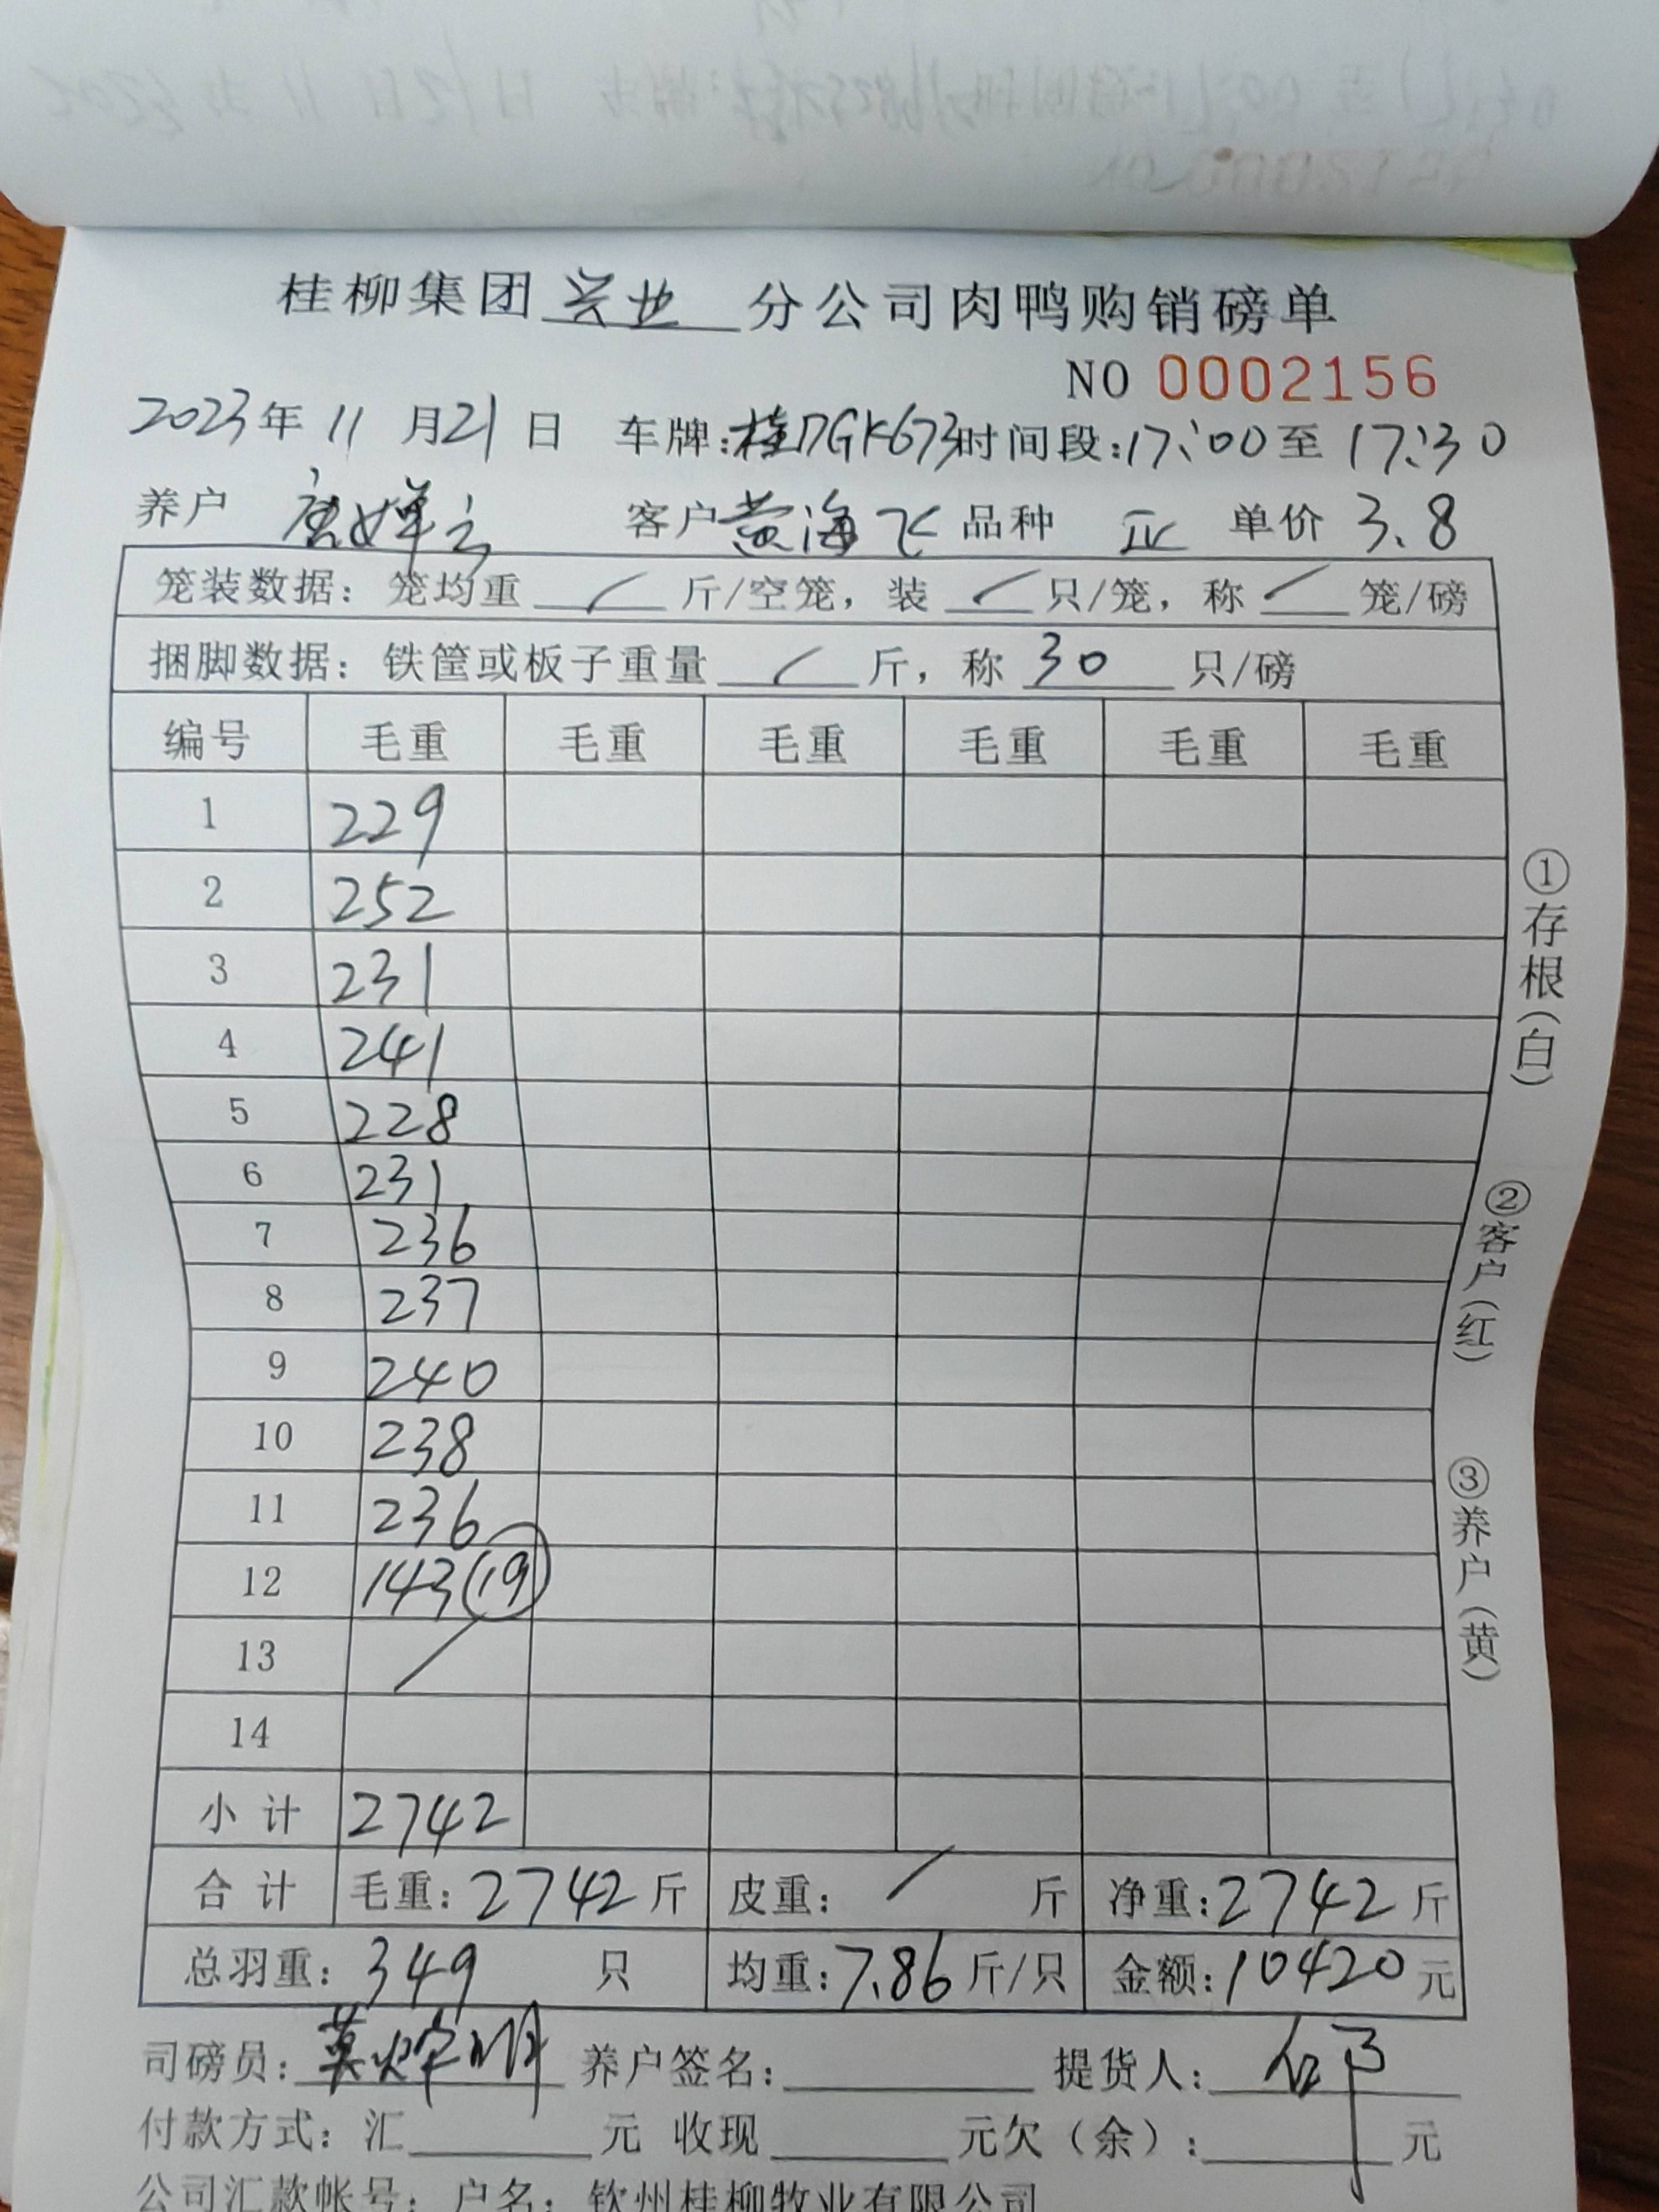 桂柳集团兴业分公司肉鸭购销磅单
NO 0002156
2023年 11 月21 日 车牌:桂DGK673时间段:17:00至 17:30
养户 唐婵云 客户黄海飞 品种 正 单价 3.8
笼装数据: 笼均重 / 斤/空笼, 装 / 只/笼, 称 / 笼/磅
捆脚数据: 铁筐或板子重量 / 斤, 称 30 只/磅
编号 毛重 毛重 毛重 毛重 毛重 毛重
1 229
2 252
3 231
4 241
5 228
6 231
7 236
8 237
9 240
10 238
11 236
12 143 (19)
13 /
14
小 计 2742
合 计 毛重: 2742 斤 皮重: / 斤 净重:2742 斤
总羽重: 349 只 均重:7.86 斤/只 金额:10420 元
司磅员: 养户签名: 提货人:
付款方式: 汇 元 收现 元欠(余): 元
公司汇款帐号: 户名: 钦州桂柳牧业有限公司
①存根(白)
②客户(红)
③养户(黄)